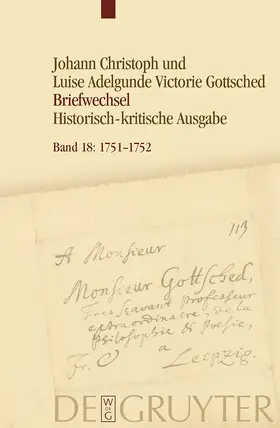 Johann Christoph und
Luise Adelgunde Victorie Gottsched
Briefwechsel
Historisch-kritische Ausgabe
Band 18: 1751–1752
113
A Monsieur
Monsieur Gottsched,
Tres Scavant Professeur
extraordinaire, de la
Philosophie & Poesie,
Fr. à Leipzig.
DE GRUYTER
W
DE
G